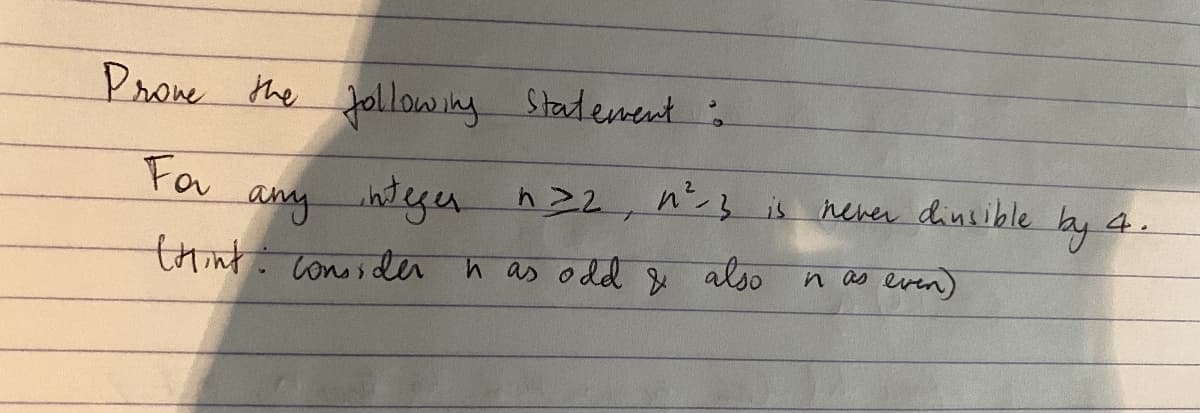 Prove the following statement :
For any integer n ≥ 2, n²-3 is never divisible by 4.
(Hint : consider n as odd & also n as even)